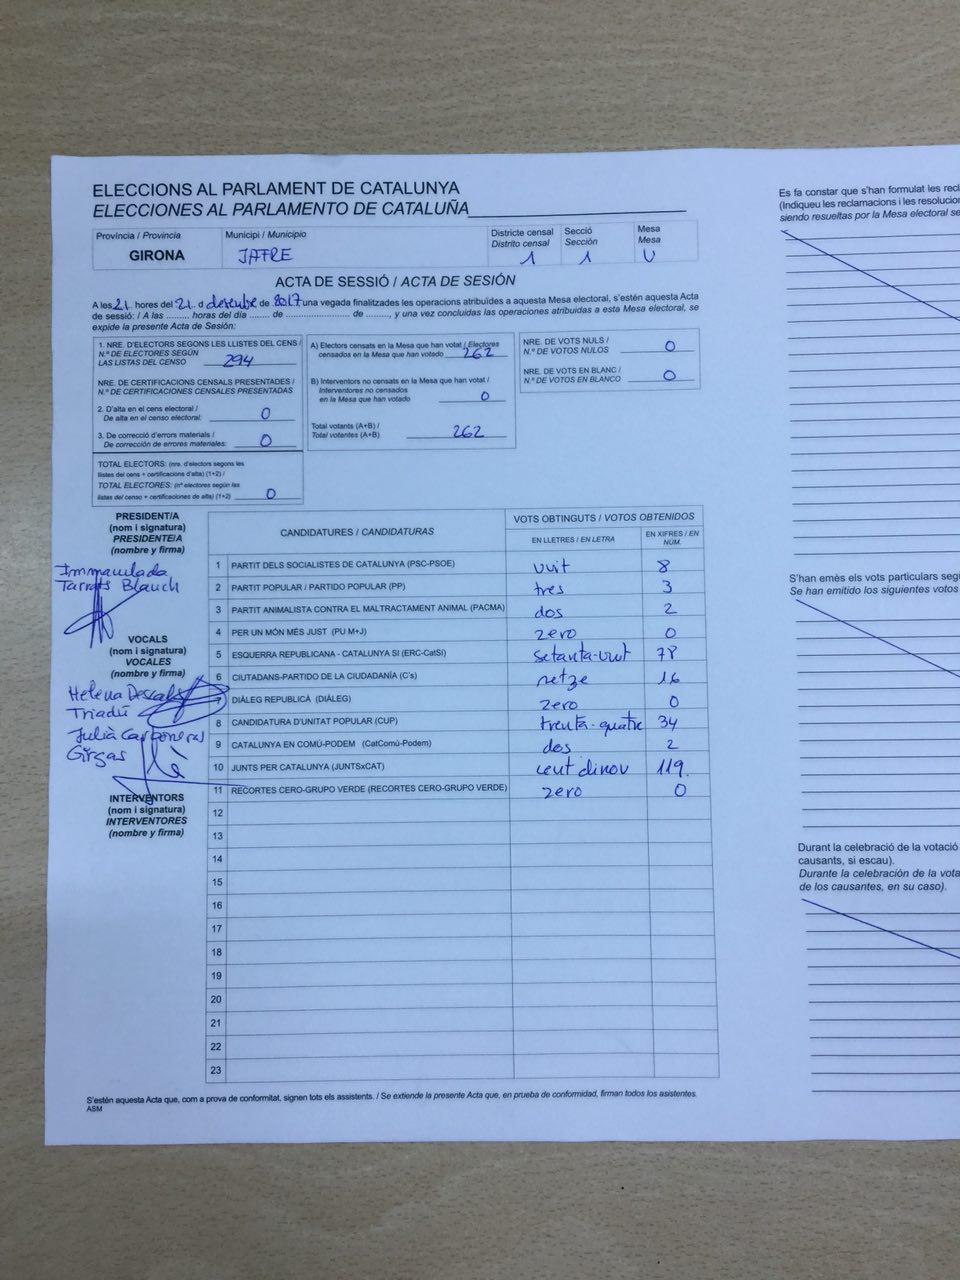 ELECCIONS AL PARLAMENT DE CATALUNYA
ELECCIONES AL PARLAMENTO DE CATALUÑA
Província / Provincia
GIRONA
Municipi / Municipio
JAFRE
Districte censal
Distrito censal
1
Secció
Sección
1
Mesa
Mesa
U
ACTA DE SESSIÓ / ACTA DE SESIÓN
A les 21 hores del 21 d desembre de 2017 una vegada finalitzades les operacions atribuïdes a aquesta Mesa electoral, s'estén aquesta Acta
de sessió: / A las ......... horas del día ........ de ........................ de ........, y una vez concluidas las operaciones atribuidas a esta Mesa electoral, se
expide la presente Acta de Sesión:
1. NRE. D'ELECTORS SEGONS LES LLISTES DEL CENS /
N.º DE ELECTORES SEGÚN
LAS LISTAS DEL CENSO 294
NRE. DE CERTIFICACIONS CENSALS PRESENTADES /
N.º DE CERTIFICACIONES CENSALES PRESENTADAS
2. D'alta en el cens electoral /
De alta en el censo electoral: 0
3. De correcció d'errors materials /
De corrección de errores materiales: 0
TOTAL ELECTORS: (nre. d'electors segons les
llistes del cens + certificacions d'alta) (1+2) /
TOTAL ELECTORES: (nº electores según las
listas del censo + certificaciones de alta) (1+2) 0
A) Electors censats en la Mesa que han votat / Electores
censados en la Mesa que han votado 262
B) Interventors no censats en la Mesa que han votat /
Interventores no censados
en la Mesa que han votado 0
Total votants (A+B) /
Total votantes (A+B) 262
NRE. DE VOTS NULS /
N.º DE VOTOS NULOS 0
NRE. DE VOTS EN BLANC /
N.º DE VOTOS EN BLANCO 0
PRESIDENT/A
(nom i signatura)
PRESIDENTE/A
(nombre y firma)
Immaculada
Tarrats Blanch
VOCALS
(nom i signatura)
VOCALES
(nombre y firma)
Helena Descals
Triadú
Julià Carboneras
Girgas
INTERVENTORS
(nom i signatura)
INTERVENTORES
(nombre y firma)
CANDIDATURES / CANDIDATURAS
VOTS OBTINGUTS / VOTOS OBTENIDOS
EN LLETRES / EN LETRA
EN XIFRES / EN
NÚM.
1 PARTIT DELS SOCIALISTES DE CATALUNYA (PSC-PSOE) vuit 8
2 PARTIT POPULAR / PARTIDO POPULAR (PP) tres 3
3 PARTIT ANIMALISTA CONTRA EL MALTRACTAMENT ANIMAL (PACMA) dos 2
4 PER UN MÓN MÉS JUST (PU M+J) zero 0
5 ESQUERRA REPUBLICANA - CATALUNYA SI (ERC-CatSí) setanta-vuit 78
6 CIUTADANS-PARTIDO DE LA CIUDADANÍA (C's) setze 16
7 DIÀLEG REPUBLICÀ (DIÀLEG) zero 0
8 CANDIDATURA D'UNITAT POPULAR (CUP) trenta-quatre 34
9 CATALUNYA EN COMÚ-PODEM (CatComú-Podem) dos 2
10 JUNTS PER CATALUNYA (JUNTSxCAT) cent dinou 119.
11 RECORTES CERO-GRUPO VERDE (RECORTES CERO-GRUPO VERDE) zero 0
12
13
14
15
16
17
18
19
20
21
22
23
S'estén aquesta Acta que, com a prova de conformitat, signen tots els assistents. / Se extiende la presente Acta que, en prueba de conformidad, firman todos los asistentes.
ASM
Es fa constar que s'han formulat les
(Indiqueu les reclamacions i les
siendo resueltas por la Mesa electoral
S'han emès els vots particulars
Se han emitido los siguientes votos
Durant la celebració de la votació
causants, si escau).
Durante la celebración de la
de los causantes, en su caso).